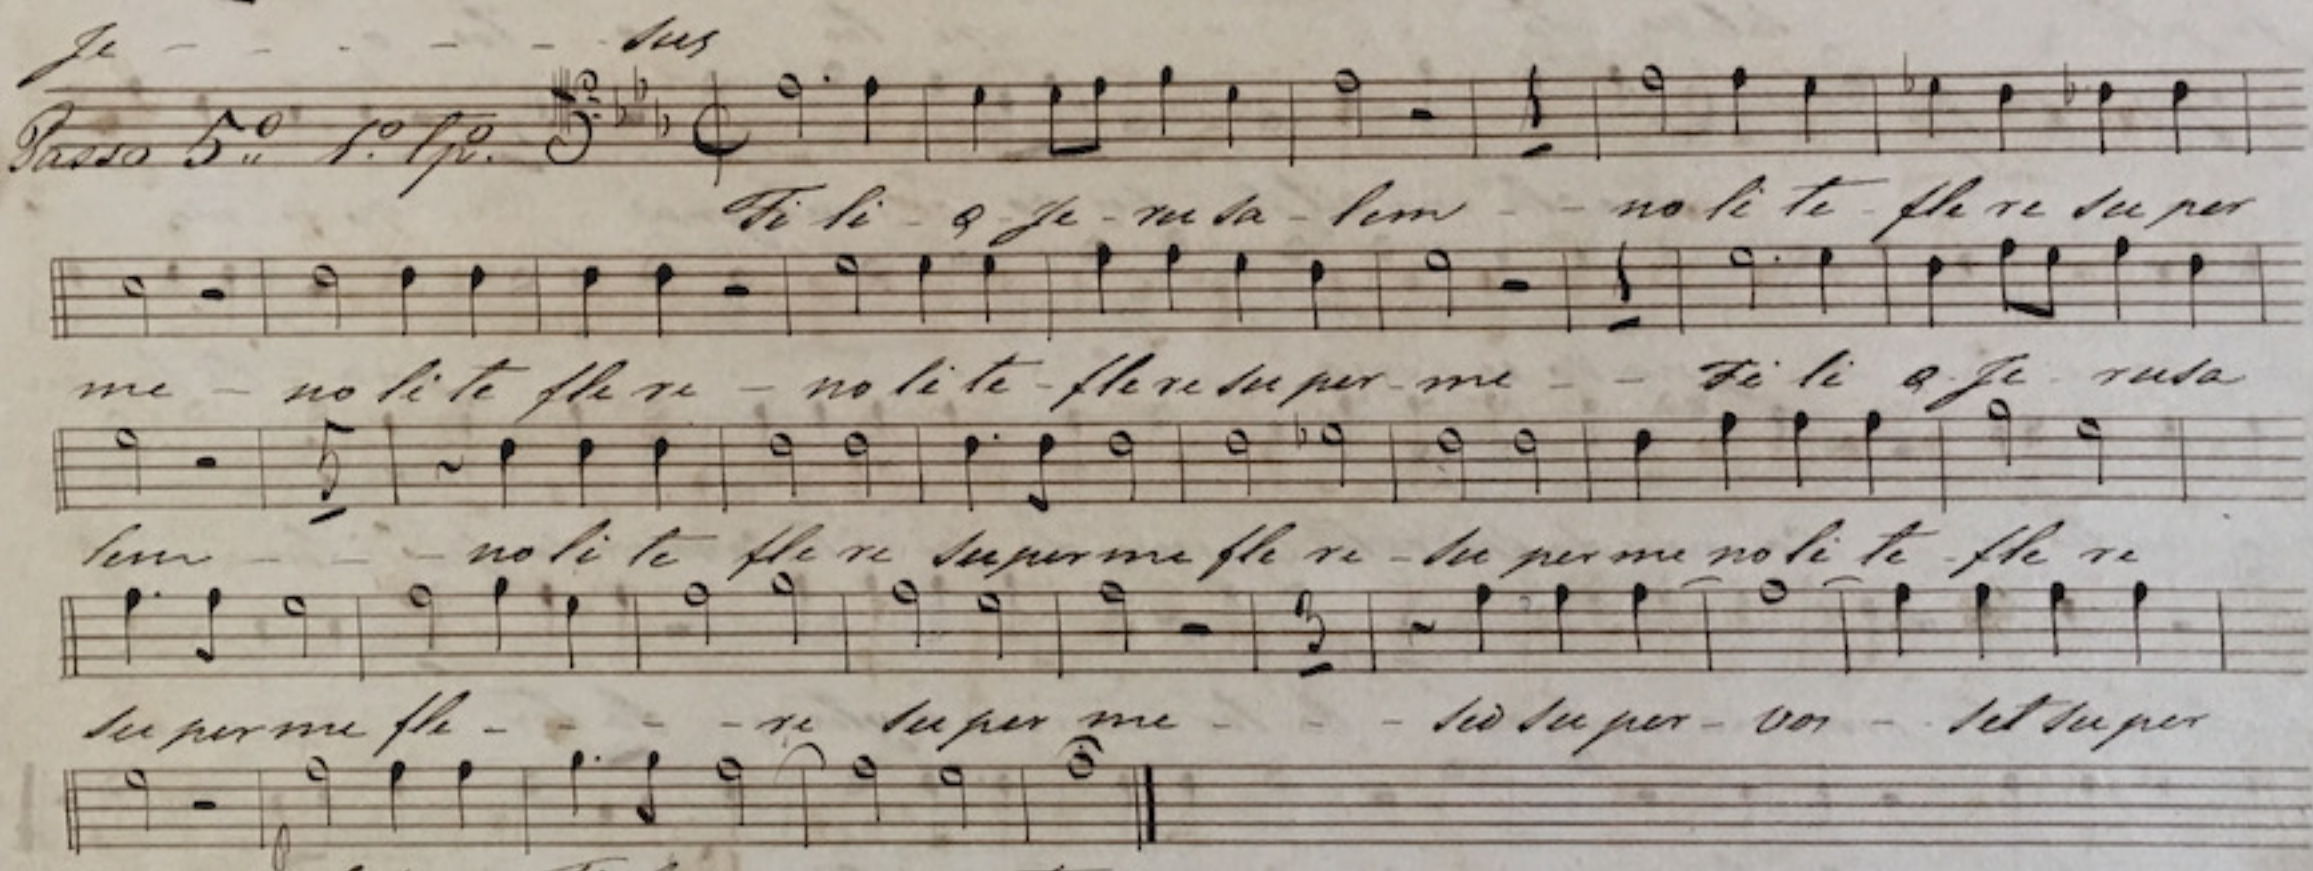 Je - - - - - sus
Passo 5º 1º Tpº.
Fi li - a Je - ru sa - lem - - no li te - fle re su per
me - no li te fle re - no li te - fle re su per - me - - Fi li a Je - rusa
lem - - - no li te fle re super me fle re - su per me no li te - fle re
su per me fle - - - - re su per me - - - sed su per - vos - - set su per